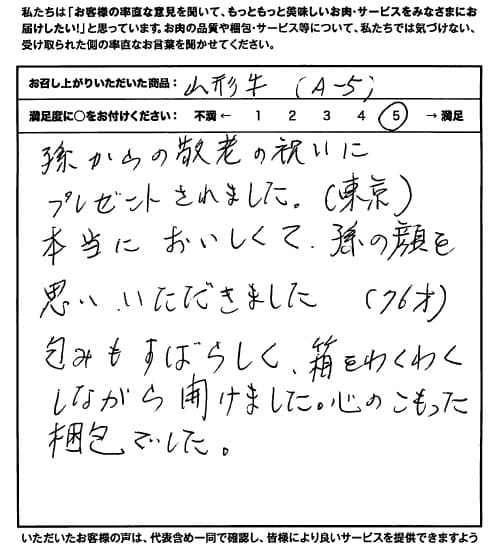 私たちは「お客様の率直な意見を聞いて、もっともっと美味しいお肉・サービスをみなさまにお
届けしたい!」と思っています。お肉の品質や梱包・サービス等について、私たちでは気づけない、
受け取られた側の率直なお言葉を聞かせてください。
お召し上がりいただいた商品: 山形牛 (A-5)
満足度に○をお付けください: 不満 ← 1 2 3 4 5 → 満足
孫からの敬老の祝いに
プレゼントされました。(東京)
本当においしくて、孫の顔を
思い、いただきました (76才)
包みもすばらしく、箱をわくわく
しながら開けました。心のこもった
梱包でした。
いただいたお客様の声は、代表含め一同で確認し、皆様により良いサービスを提供できますよう